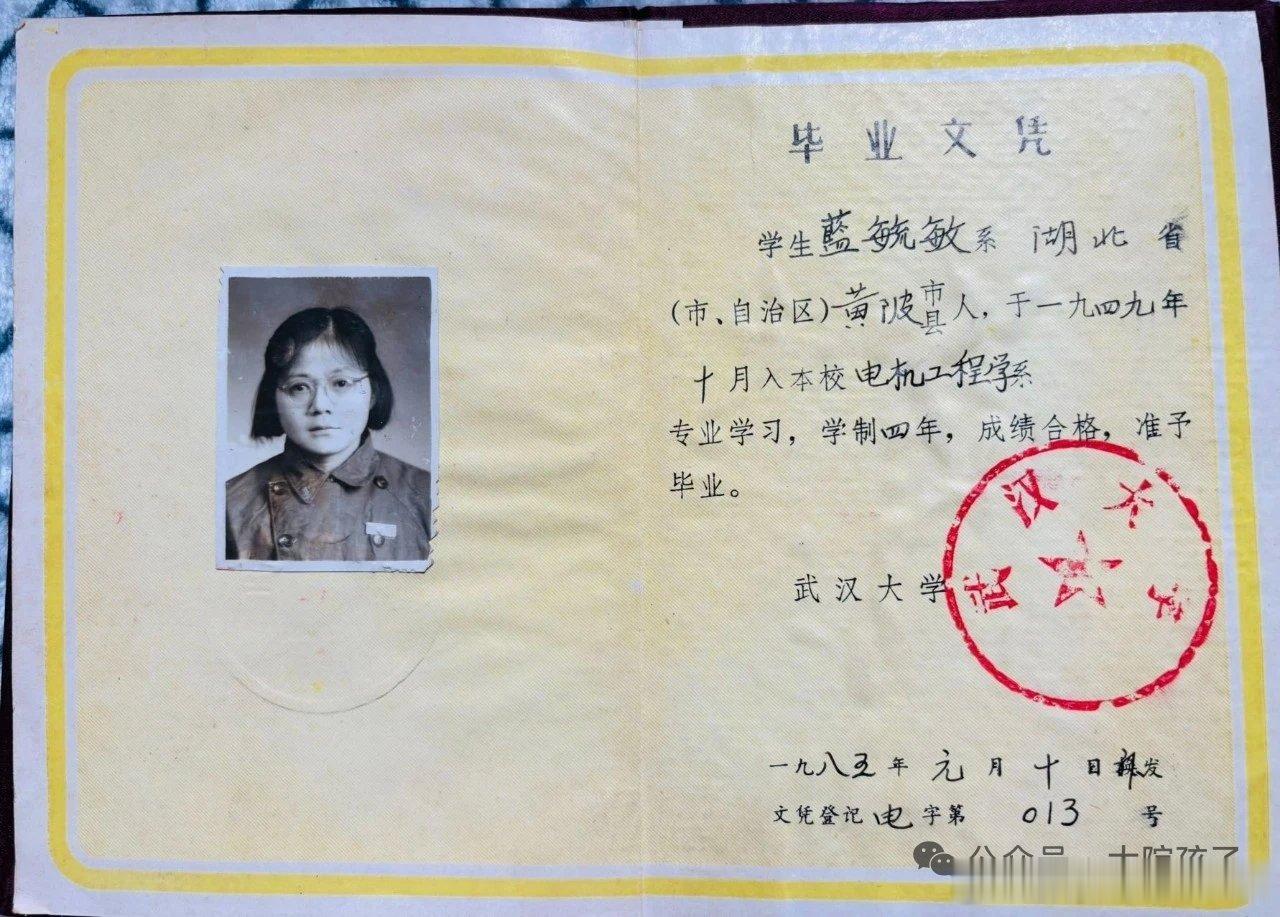 毕业文凭
学生藍毓敏系 湖北 省
(市、自治区)黄陂市县人，于一九四九年
十月入本校电机工程学系
专业学习，学制四年，成绩合格，准予
毕业。
武汉大学
武汉大学
一九八五年 元 月 十 日补发
文凭登记电字第 013 号
公众号
大院孩子